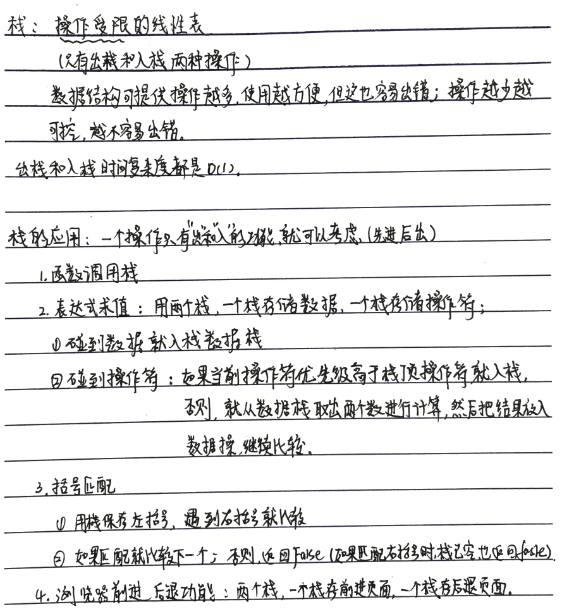 栈：操作受限的线性表
（只有出栈和入栈两种操作）
数据结构可提供操作越多，使用越方便，但这也容易出错；操作越少越
可控，越不容易出错。
出栈和入栈时间复杂度都是O(1)。
栈的应用：一个操作只有"出"和"入"的功能，就可以考虑，（先进后出）
1.函数调用栈
2.表达式求值：用两个栈，一个栈存储数据，一个栈存储操作符；
①碰到数据就入栈数据栈
②碰到操作符：如果当前操作符优先级高于栈顶操作符就入栈，
否则，就从数据栈取出两个数进行计算，然后把结果放入
数据操，继续比较。
3.括号匹配
①用栈保存左括号，遇到右括号就比较
②如果匹配就比较下一个；否则，返回False（如果匹配右括号时，栈已空也返回false）
4.浏览器前进、后退功能：两个栈，一个栈存前进页面，一个栈存后退页面。